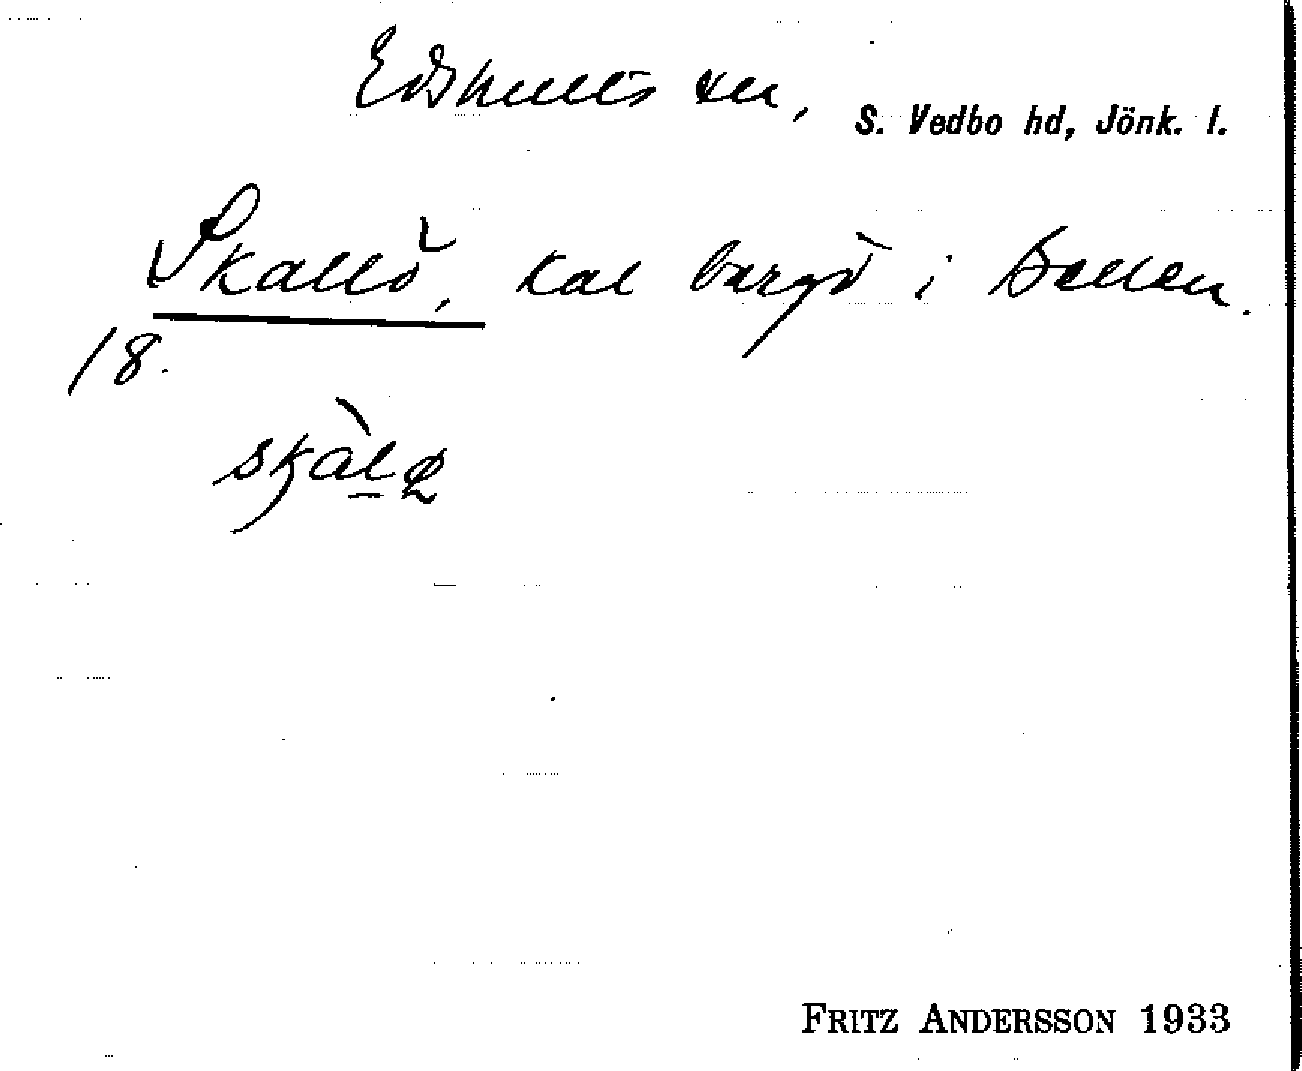 Edshults sn, S. Vedbo hd, Jönk. l.
Skallö, kal bergö i Solen.
18.
skàlø
FRITZ ANDERSSON 1933